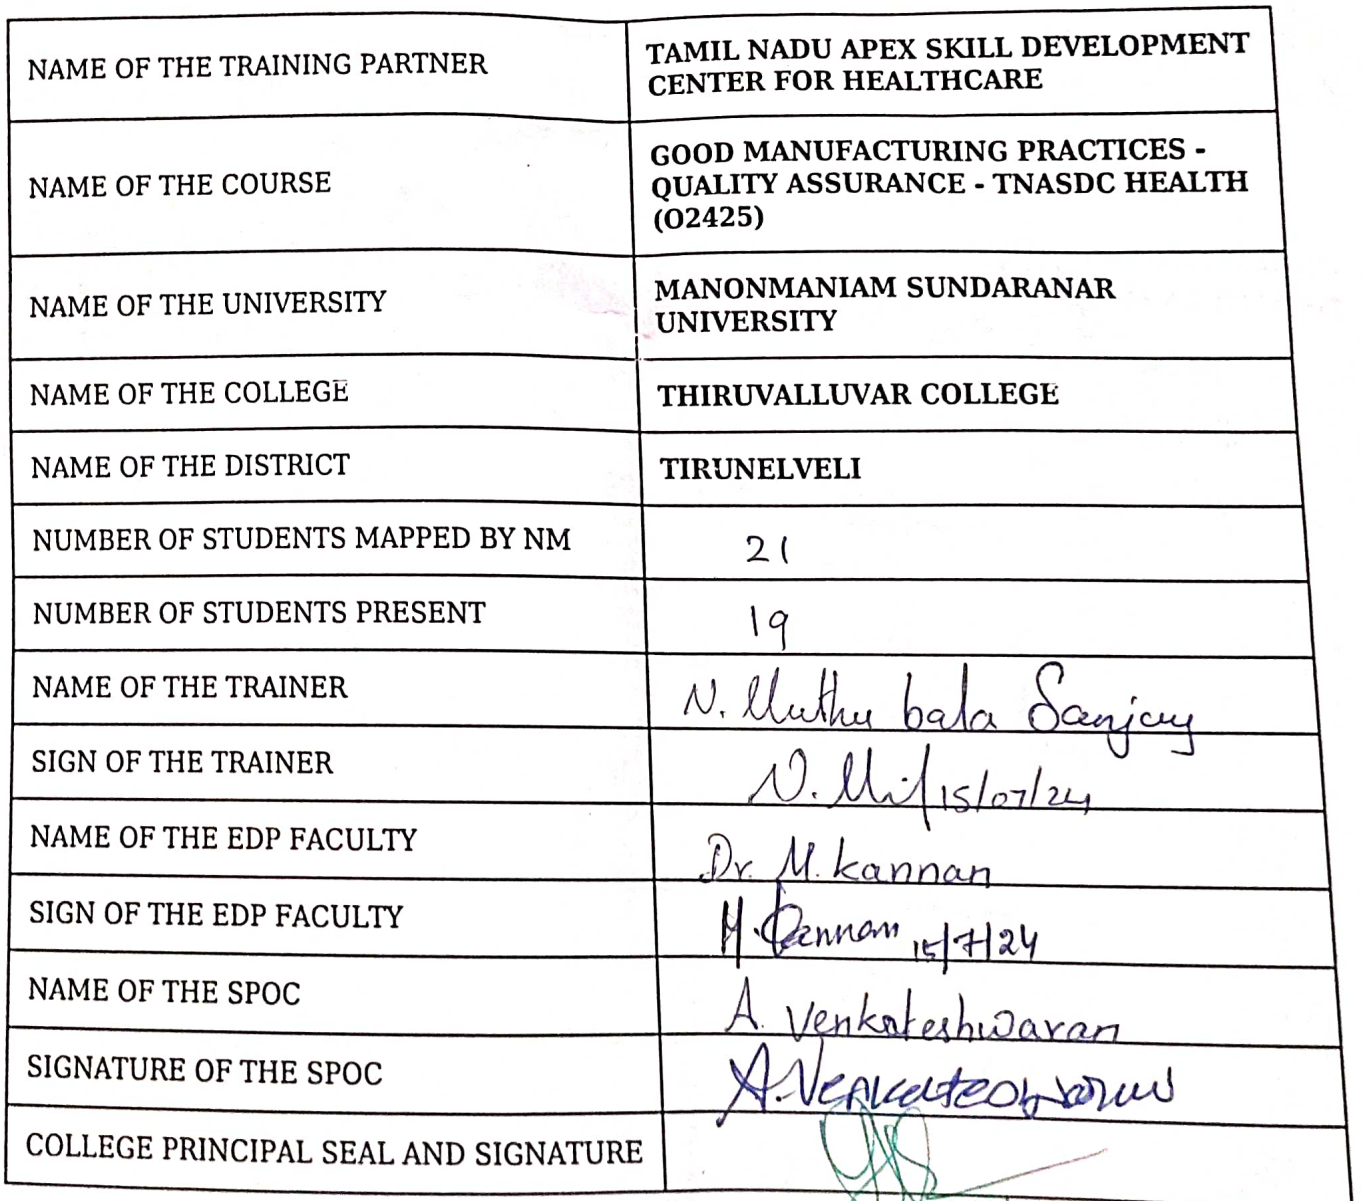 NAME OF THE TRAINING PARTNER
TAMIL NADU APEX SKILL DEVELOPMENT
CENTER FOR HEALTHCARE
NAME OF THE COURSE
GOOD MANUFACTURING PRACTICES -
QUALITY ASSURANCE - TNASDC HEALTH
(O2425)
NAME OF THE UNIVERSITY
MANONMANIAM SUNDARANAR
UNIVERSITY
NAME OF THE COLLEGE
THIRUVALLUVAR COLLEGE
NAME OF THE DISTRICT
TIRUNELVELI
NUMBER OF STUDENTS MAPPED BY NM
21
NUMBER OF STUDENTS PRESENT
19
NAME OF THE TRAINER
N. Muthu bala Sanjay
SIGN OF THE TRAINER
15/07/24
NAME OF THE EDP FACULTY
Dr. M. kannan
SIGN OF THE EDP FACULTY
M. Kannan 15/7/24
NAME OF THE SPOC
A. Venkateshwaran
SIGNATURE OF THE SPOC
A. Venkateshwaran
COLLEGE PRINCIPAL SEAL AND SIGNATURE